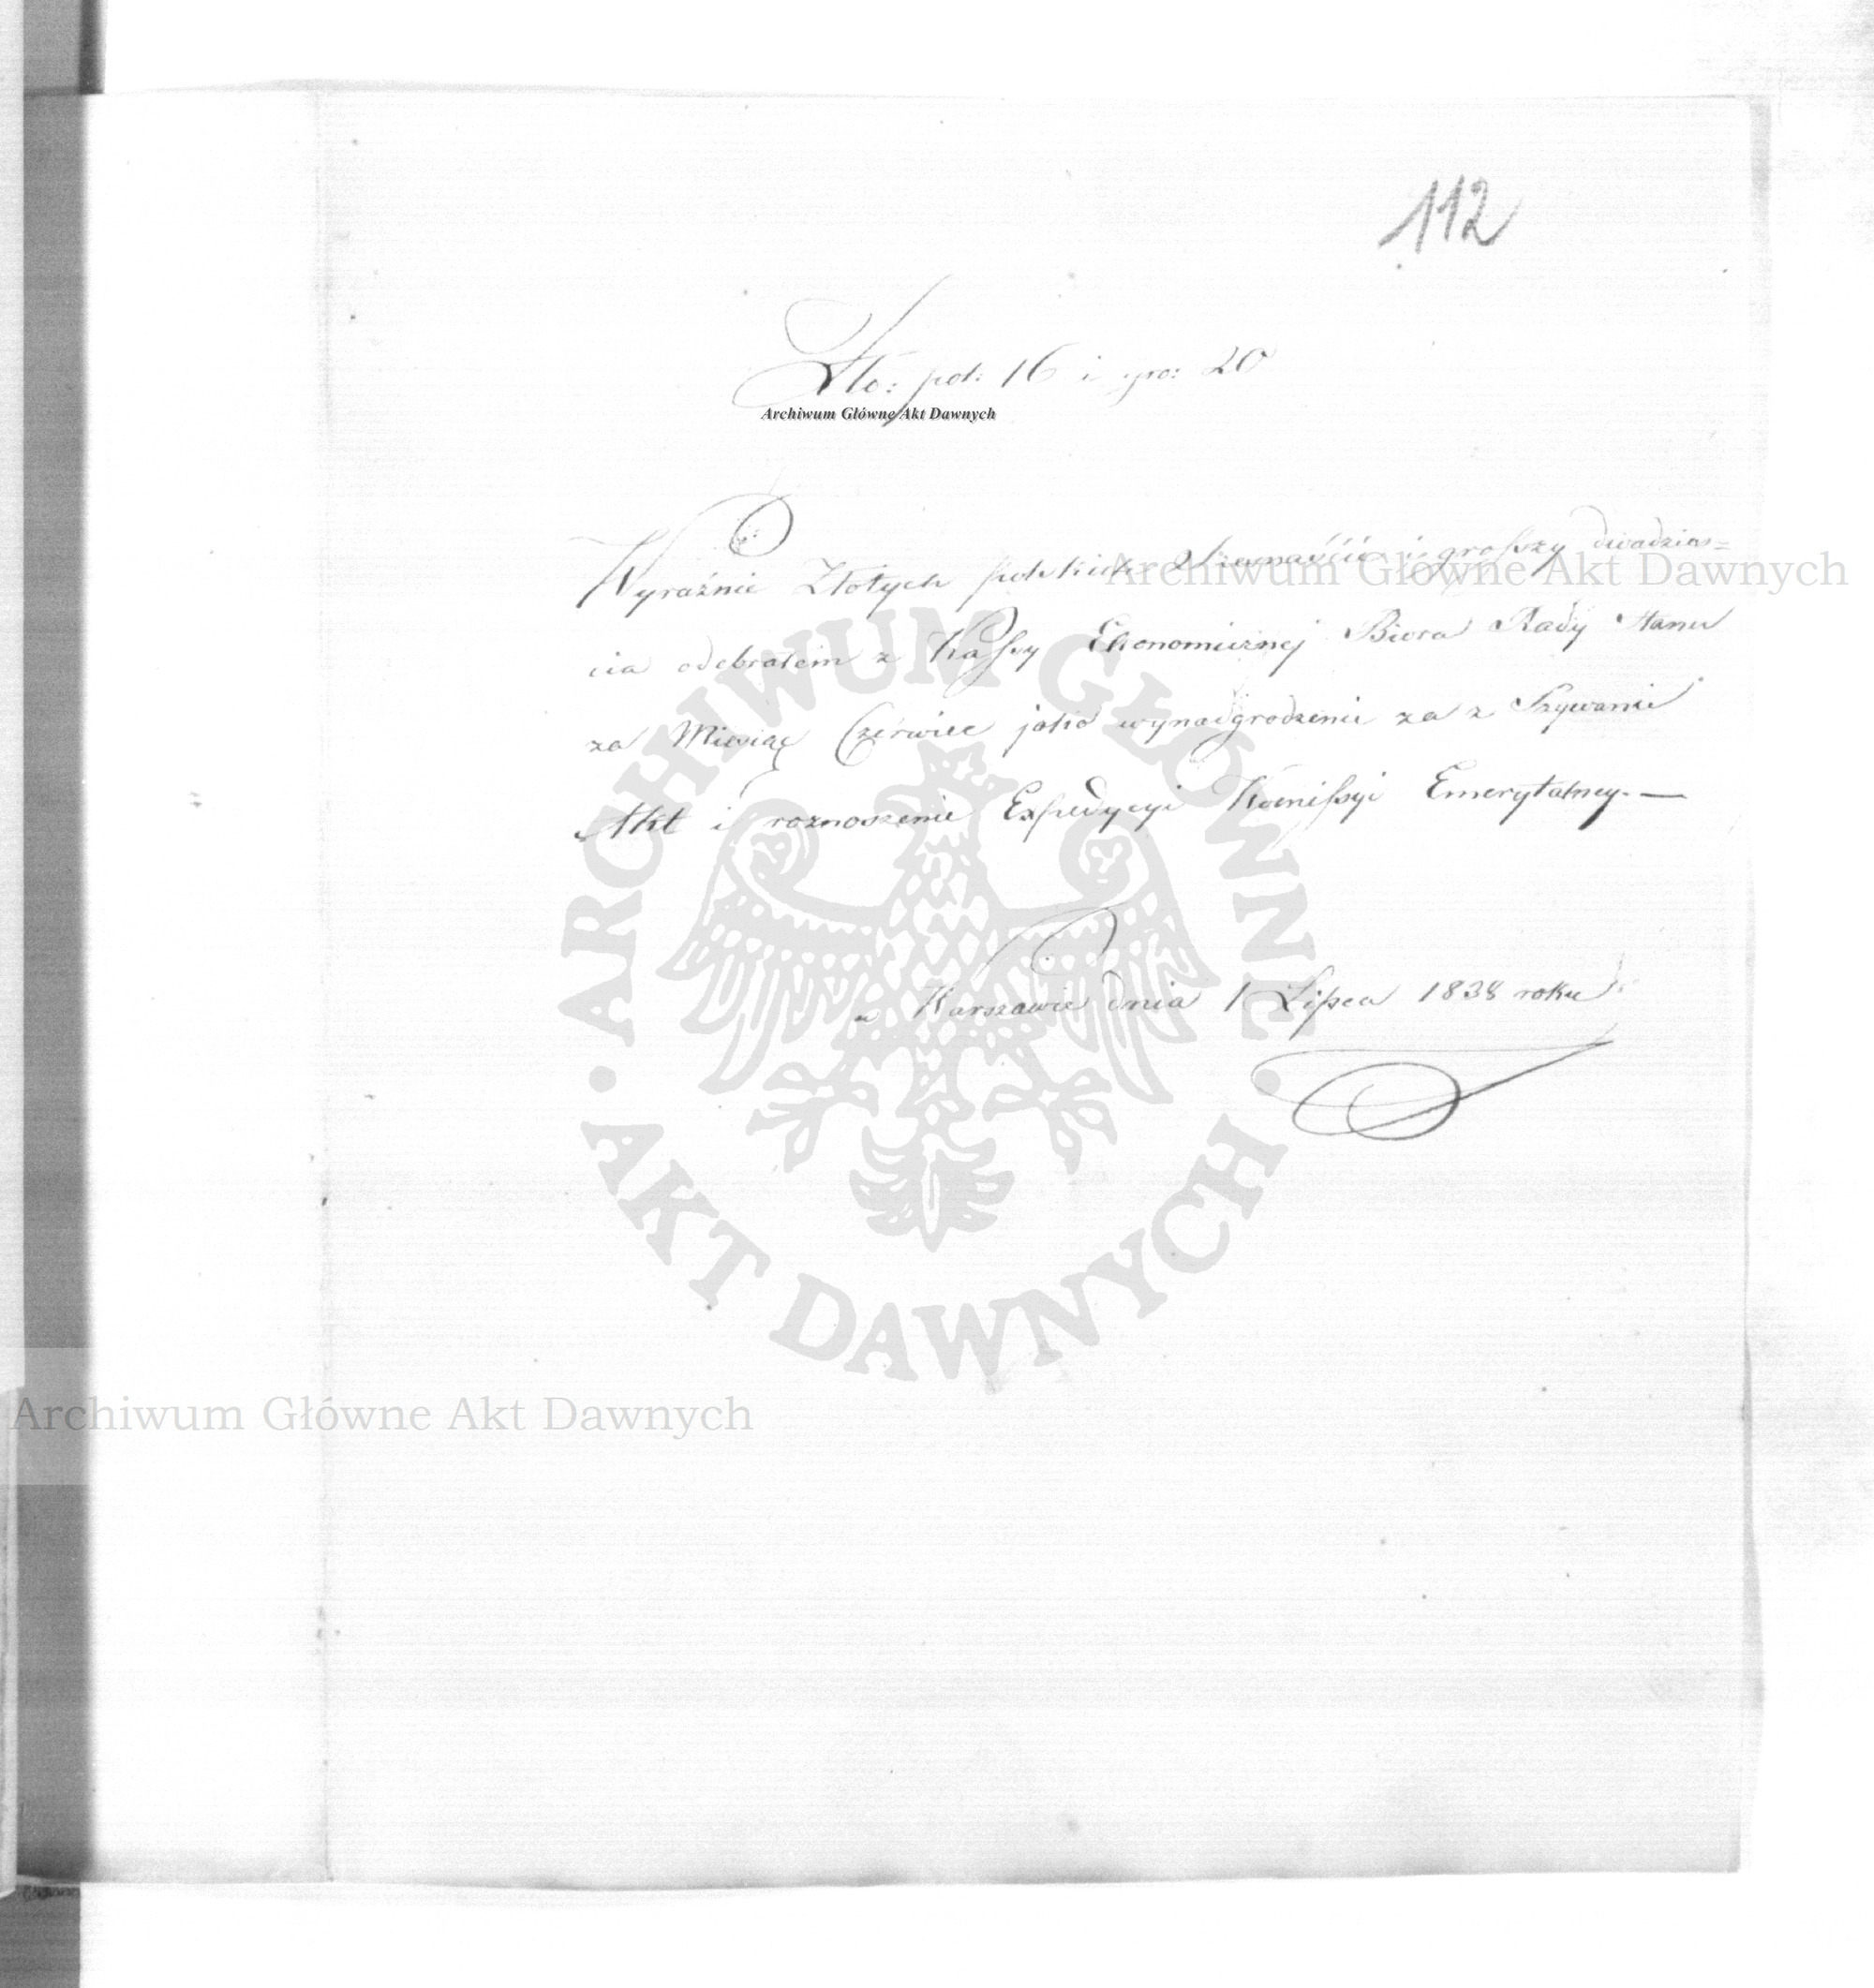 112
Zło: pol: 16 i gro: 20
Archiwum Główne Akt Dawnych
Wyraźnie Złotych polskich Szesnaście i groszy dwadzies=
Archiwum Główne Akt Dawnych
cia odebrałem z Kassy Ekonomicznej Biura Rady Stanu
za Miesiąc Czerwiec jako wynadgrodzenie za z Szywanie
Akt i roznoszenie Expedycyi Komissyi Emerytalney. —
w Warszawie dnia 1 Lipca 1838 roku
ARCHIWUM GŁÓWNE • AKT DAWNYCH •
Archiwum Główne Akt Dawnych